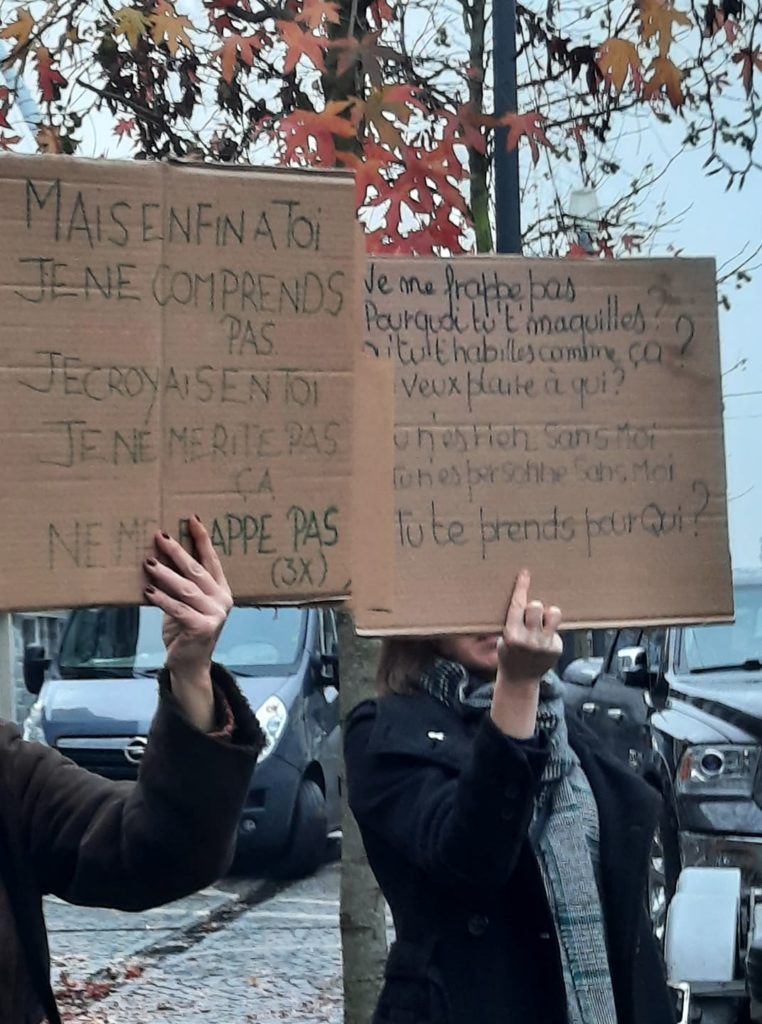 MAIS ENFIN A TOI
JE NE COMPRENDS
PAS
JE CROYAIS EN TOI
JE NE MERITE PAS
ÇA
NE ME FRAPPE PAS
(3X)
Ne me frappe pas
Pourquoi tu t'maquilles ?
tu t'habilles comme ça ?
veux plaire à qui ?
n'es rien sans Moi
Tu n'es personne Sans Moi
Tu te prends pour Qui ?